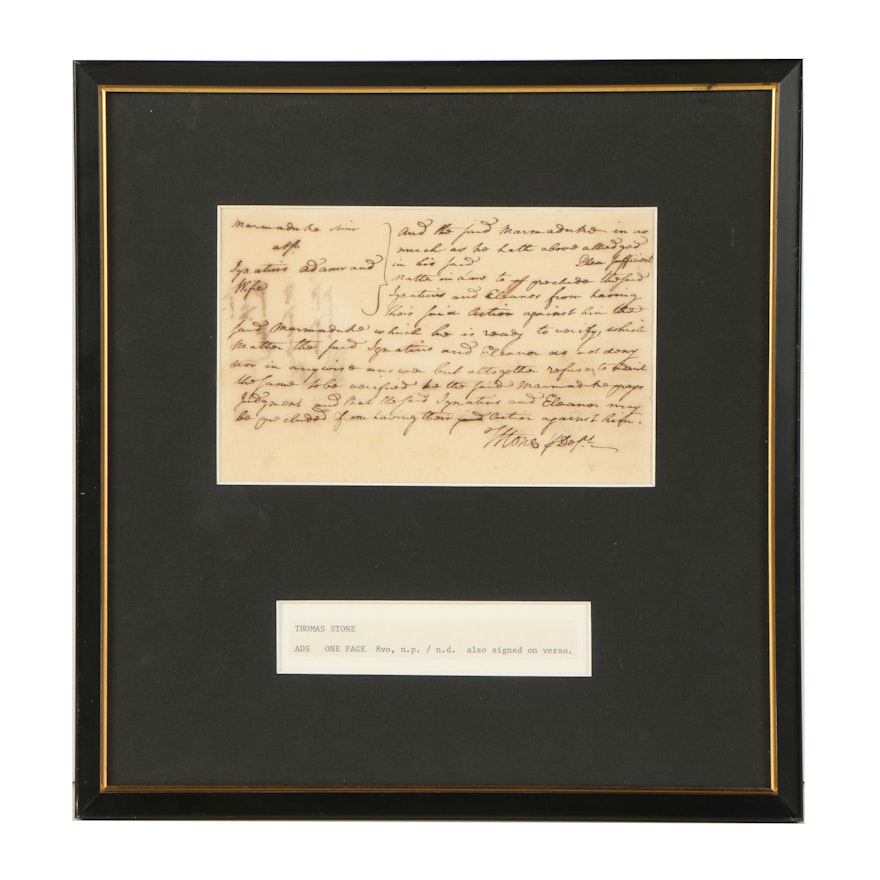 Marmaduke Sim
ats
Ignatius Adams and
Wife
And the said Marmaduke in as
much as he hath above alledged
in his said Plea sufficient
matter in Law to preclude the said
Ignatius and Eleanor from having
their said Action against him the
said Marmaduke which he is ready to verify, which
matter the said Ignatius and Eleanor do not deny
nor in anywise answer but altogether refuse to
the same to be verified he the said Marmaduke prays
Judgment and that the said Ignatius and Eleanor may
be precluded from having their said Action against him.
TStone Deft.
THOMAS STONE
ADS ONE PAGE 8vo, n.p. / n.d. also signed on verso.